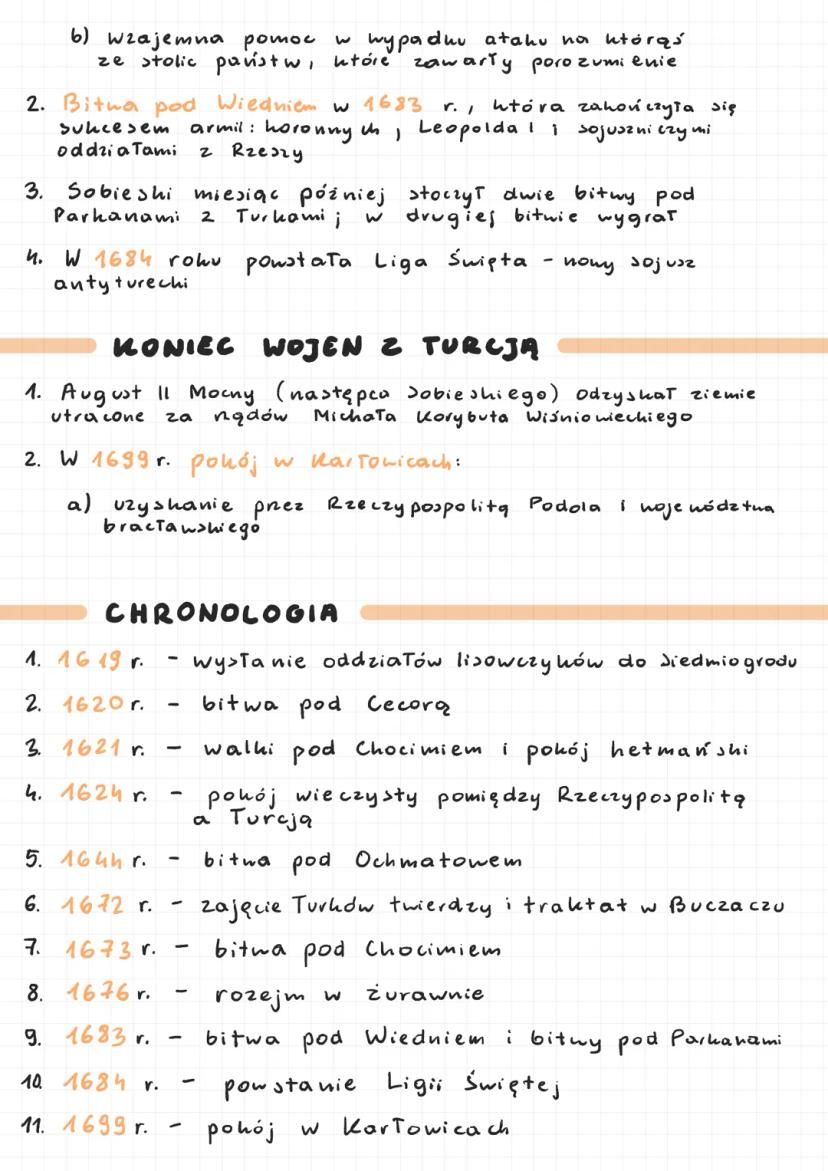 b) wzajemna pomoc w wypadku ataku na którąś
ze stolic państw, które zawarły porozumienie
2. Bitwa pod Wiedniem w 1683 r., która zakończyła się
sukcesem armii: koronnych, Leopolda I i sojuszniczymi
oddziałami z Rzeszy
3. Sobieski miesiąc później stoczył dwie bitwy pod
Parkanami z Turkami; w drugiej bitwie wygrał
4. W 1684 roku powstała Liga Święta - nowy sojusz
antyturecki
KONIEC WOJEN Z TURCJĄ
1. August II Mocny (następca Sobieskiego) odzyskał ziemie
utracone za rządów Michała Korybuta Wiśniowieckiego
2. W 1699 r. pokój w Karłowicach:
a) uzyskanie przez Rzeczypospolitą Podola i województwa
bracławskiego
CHRONOLOGIA
1. 1619 r. - wysłanie oddziałów lisowczyków do Siedmiogrodu
2. 1620 r. - bitwa pod Cecorą
3. 1621 r. - walki pod Chocimiem i pokój hetmański
4. 1624 r. - pokój wieczysty pomiędzy Rzeczypospolitą
a Turcją
5. 1644 r. - bitwa pod Ochmatowem
6. 1672 r. - zajęcie Turków twierdzy i traktat w Buczaczu
7. 1673 r. - bitwa pod Chocimiem
8. 1676 r. - rozejm w żurawnie
9. 1683 r. - bitwa pod Wiedniem i bitwy pod Parkanami
10. 1684 r. - powstanie Ligii Świętej
11. 1699 r. - pokój w Karłowicach